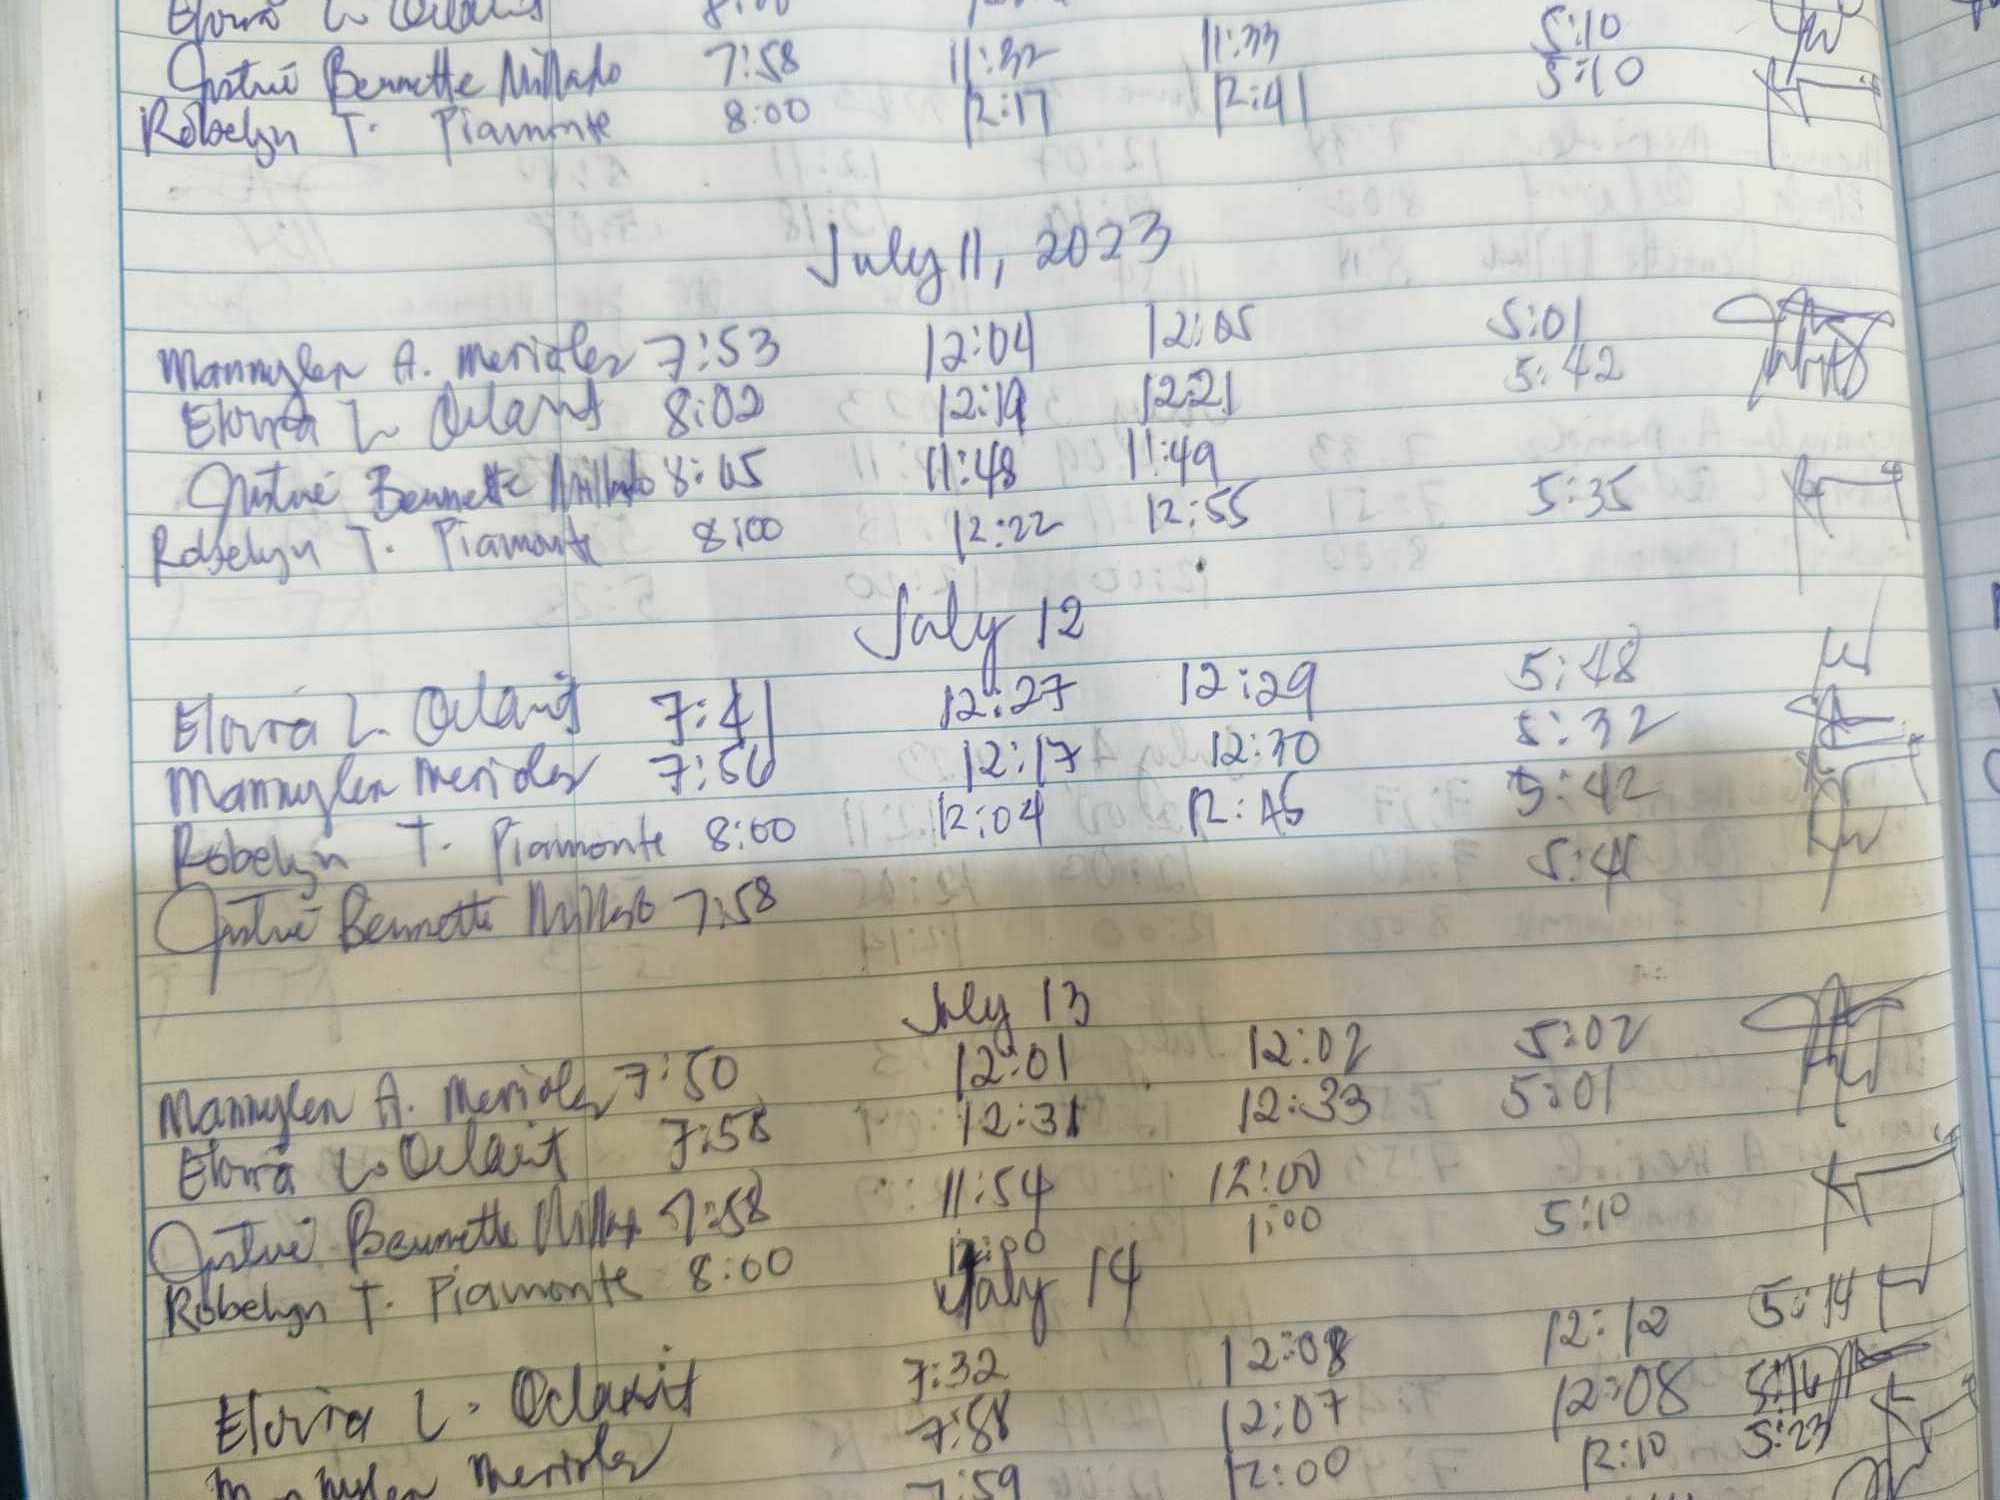 8:00
Justné Bennette Millado 7:58 11:32 11:33 5:10
Robelyn T. Piamonte 8:00 12:17 12:41 5:10
July 11, 2023
Mannylen A. Merioles 7:53 12:04 12:05 5:01
Elovra L. Oclarit 8:02 12:19 12:21 5:42
Justné Bennette Millado 8:05 11:48 11:49
Robelyn T. Piamonte 8:00 12:22 12:55 5:35
July 12
Elovra L. Oclarit 7:41 12:27 12:29 5:48
Mannylen Merioles 7:56 12:17 12:30 5:32
Robelyn T. Piamonte 8:00 12:04 12:45 5:42
Justné Bennette Millado 7:58
July 13
Mannylen A. Merioles 7:50 12:01 12:02 5:02
Elovra L. Oclarit 7:58 12:31 12:33 5:01
Justné Bennette Millado 7:58 11:54 12:00
Robelyn T. Piamonte 8:00 12:00 1:00 5:10
July 14
Elovra L. Oclarit 7:32 12:08 12:12 5:14
Mannylen Merioles 7:58 12:07 12:08
7:59 12:00 12:10 5:23